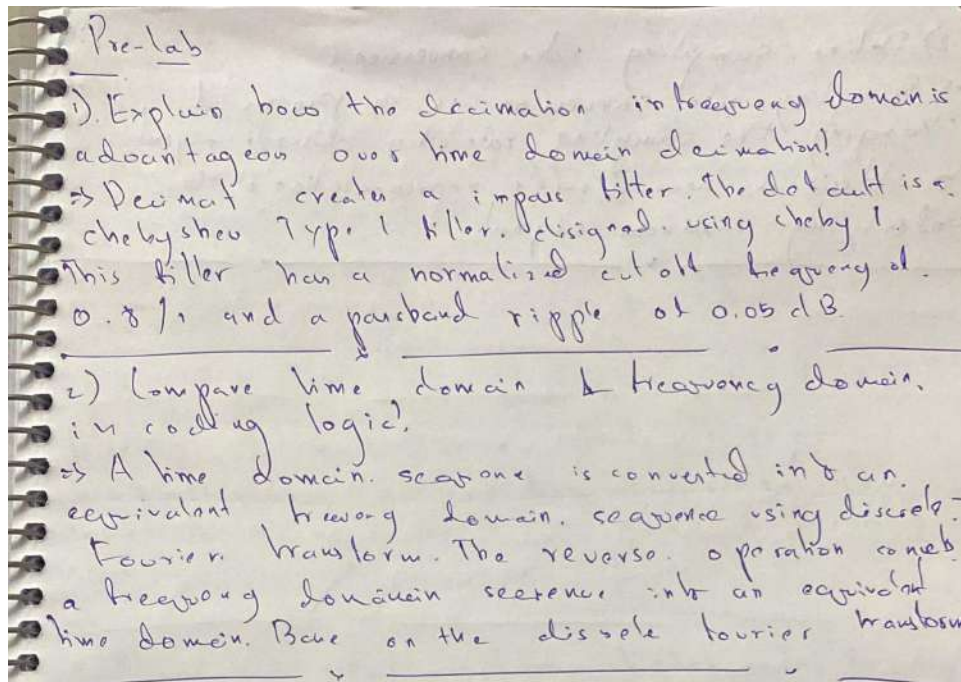 Pre-lab
1). Explain how the decimation in frequency domain is
advantageous over time domain decimation?
=> Decimat creates a lowpass filter. The default is a
chebyshev Type 1 filter. designed. using cheby 1
This filter has a normalized cutoff frequency of.
0.8/r and a passband ripple of 0.05 dB.
2) Compare time domain & frequency domain.
in coding logic?
=> A time domain. sequence is converted into an.
equivalent frequency domain. sequence using discrete-
Fourier. transform. The reverse. operation
a frequency domain sequence into an equivalent
time domain. Base on the discrete fourier transform